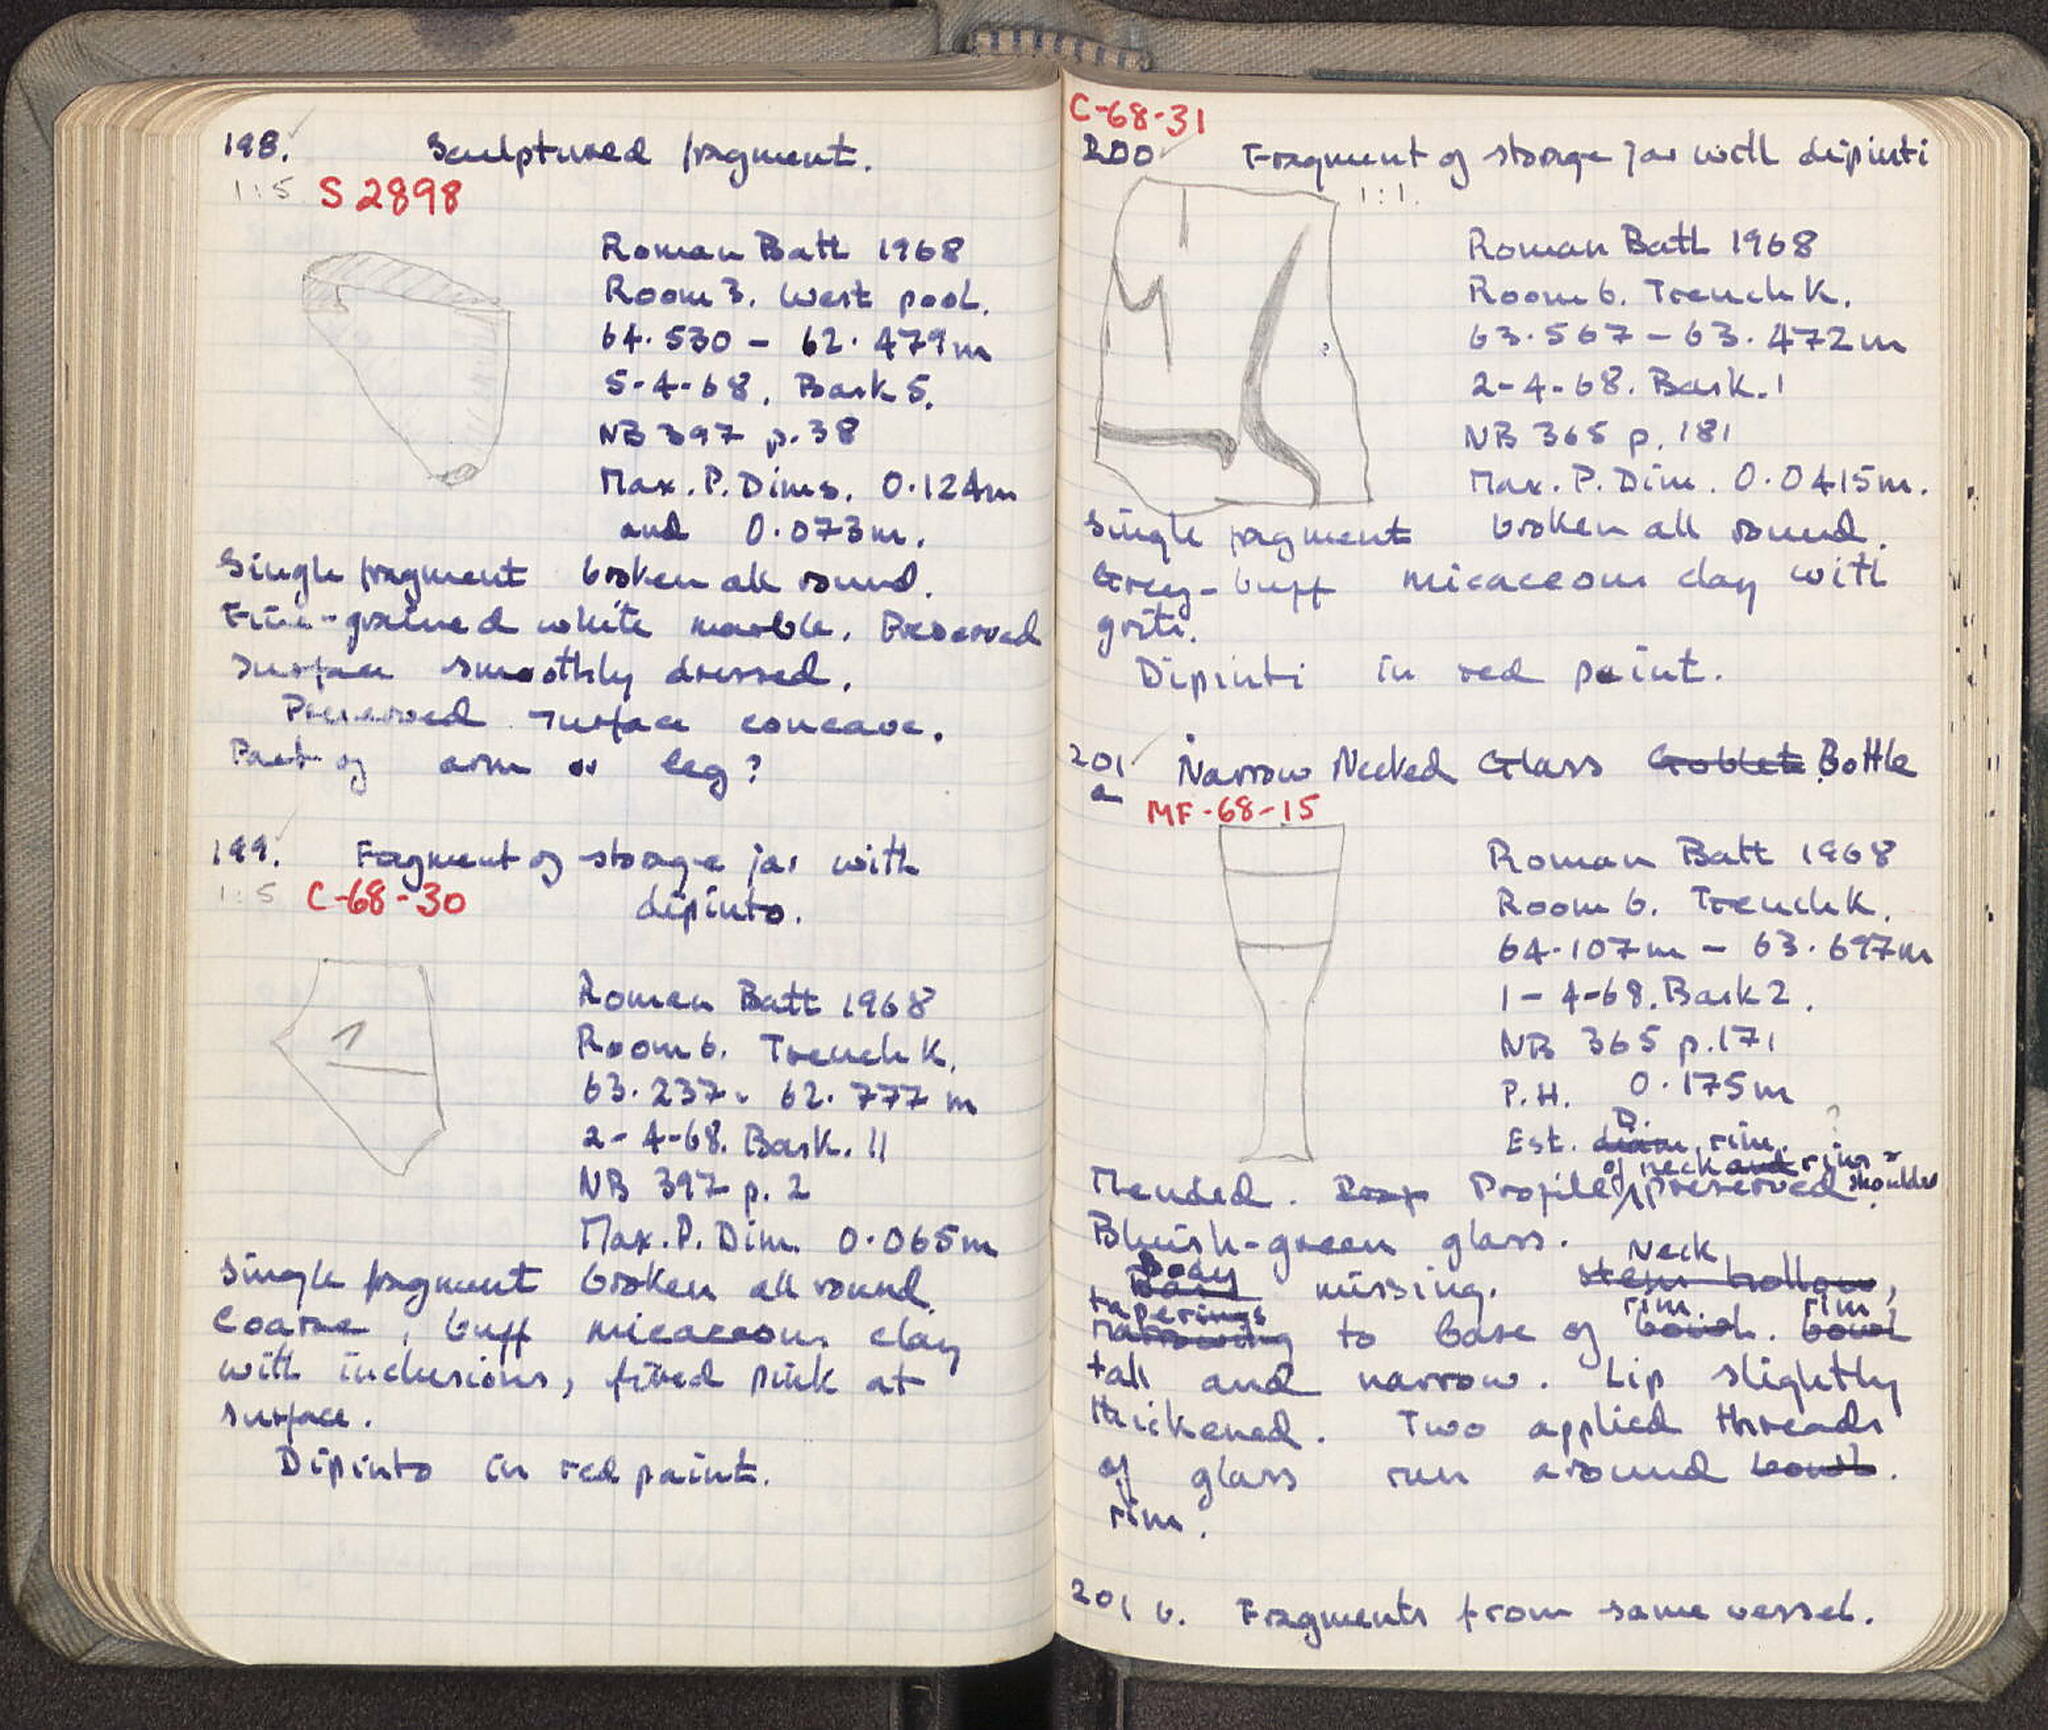 198. Sculptured fragment.
1:5 S 2898
Roman Bath 1968
Room 3. West pool.
64.530 - 62.479m
5-4-68. Bask 5.
NB 397 p.38
Max. P. Dims. 0.124m
and 0.073m.
Single fragment broken all round.
Fine-grained white marble. Preserved
surface smoothly dressed.
Preserved surface concave.
Part of arm or leg?
199. Fragment of storage jar with
1:5 C-68-30 dipinto.
Roman Bath 1968
Room 6. Trench K.
63.237 - 62.777 m
2-4-68. Bask. 11
NB 397 p. 2
Max. P. Dim. 0.065m
Single fragment broken all round.
Coarse, buff micaceous clay
with inclusions, fired pink at
surface.
Dipinto in red paint.
C-68-31
200 Fragment of storage jar with dipinti
1:1.
Roman Bath 1968
Room 6. Trench K.
63.567 - 63.472m
2-4-68. Bask. 1
NB 365 p. 181
Max. P. Dim. 0.0415m.
Single fragment broken all round.
Grey-buff micaceous clay with
grits.
Dipinti in red paint.
201 Narrow Necked Glass Goblet Bottle
a MF-68-15
Roman Bath 1968
Room 6. Trench K.
64.107m - 63.697m
1-4-68. Bask 2.
NB 365 p.171
P.H. 0.175m
D. ?
Est. diam. rim.
of neck and rim
Mended. Profile preserved shoulder.
Bluish-green glass. Neck
Body
Base missing. Stem hollow,
tapering rim. rim
narrowing to base of bowl. bowl
tall and narrow. Lip slightly
thickened. Two applied threads
of glass run around bowl.
rim.
201 b. Fragments from same vessel.